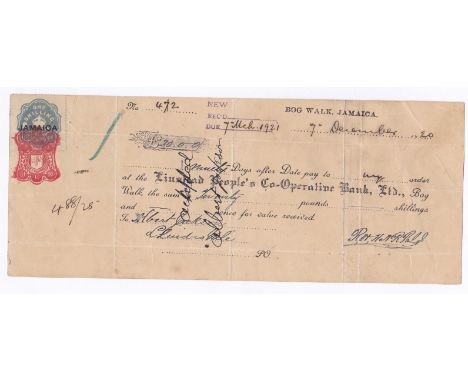 No 472 NEW BOG WALK, JAMAICA.
REC'D
DUE 7 Mch 1921 7 December 1920
JAMAICA
£20.0.0
Days after Date pay to my order
at the Linstead People's Co-Operative Bank, Ltd., Bog
Walk, the sum of Twenty pounds shillings
and pence for value received
4 88/25
To Albert
Accepted
PO.